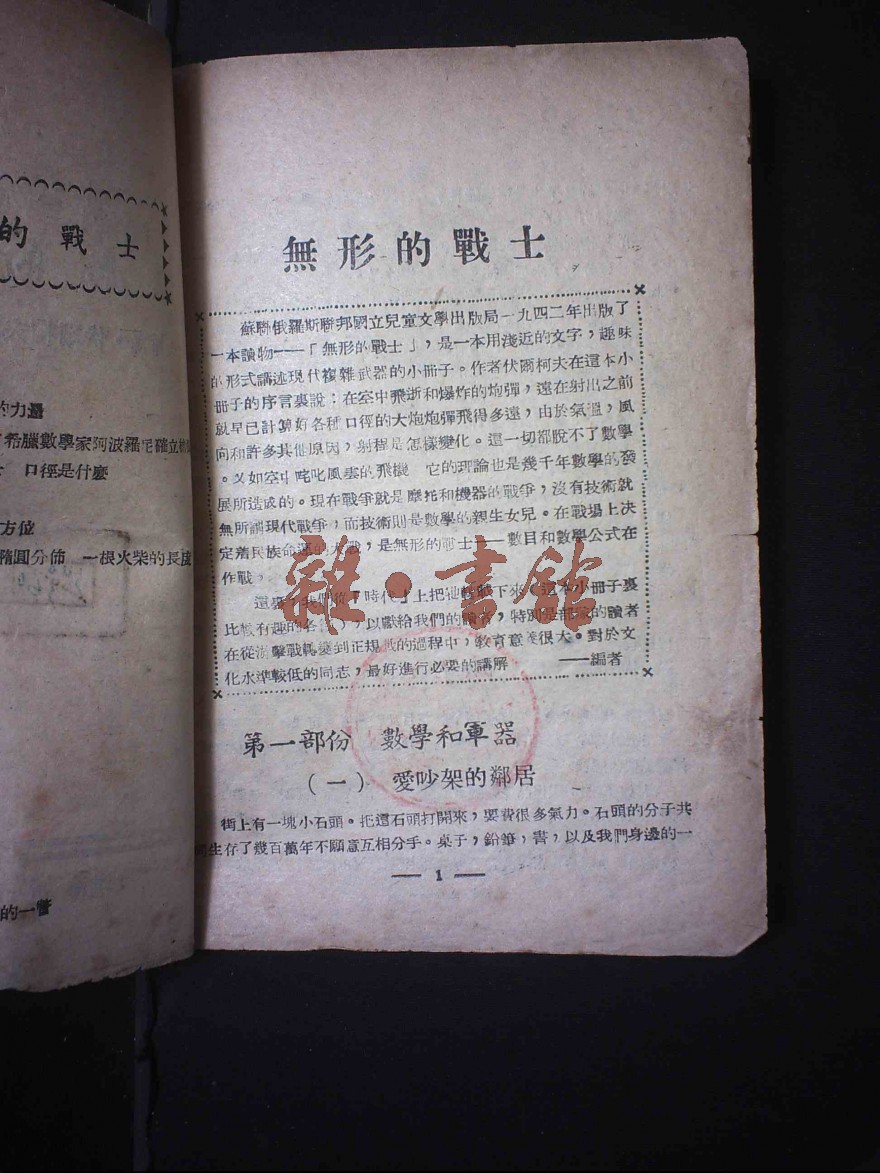 的戰士
的力量
希臘數學家阿波羅尼確立
口徑是什麼
方位
橢圓分佈 一根火柴的長度
的一瞥
無形的戰士
蘇聯俄羅斯聯邦國立兒童文學出版局一九四二年出版了
一本讀物——「無形的戰士」，是一本用淺近的文字，趣味
的形式講述現代複雜武器的小冊子。作者伏爾柯夫在這本小
冊子的序言裏說：在空中飛逝和爆炸的炮彈，遠在射出之前
就早已計算好各種口徑的大炮炮彈飛得多遠，由於氣溫，風
向和許多其他原因，射程是怎樣變化。這一切都脫不了數學
。又如空中咤叱風雲的飛機 它的理論也是幾千年數學的發
展所造成的。現在戰爭就是摩托和機器的戰爭，沒有技術就
無所謂現代戰爭，而技術則是數學的親生女兒。在戰場上決
定着民族命運的大戰，是無形的戰士——數目和數學公式在
作戰。
這裏，我們從「時代」上把他轉載下來（這本小冊子裏
比較有趣的各），以獻給我們的讀者，特別是部隊的讀者
在從游擊戰轉變到正規戰的過程中，教育意義很大。對於文
化水準較低的同志，最好進行必要的講解 ——編者
雜·書館
第一部份 數學和軍器
（一） 愛吵架的鄰居
街上有一塊小石頭。把這石頭打開來，要費很多氣力。石頭的分子共
同生存了幾百萬年不願意互相分手。桌子，鉛筆，書，以及我們身邊的一
— 1 —